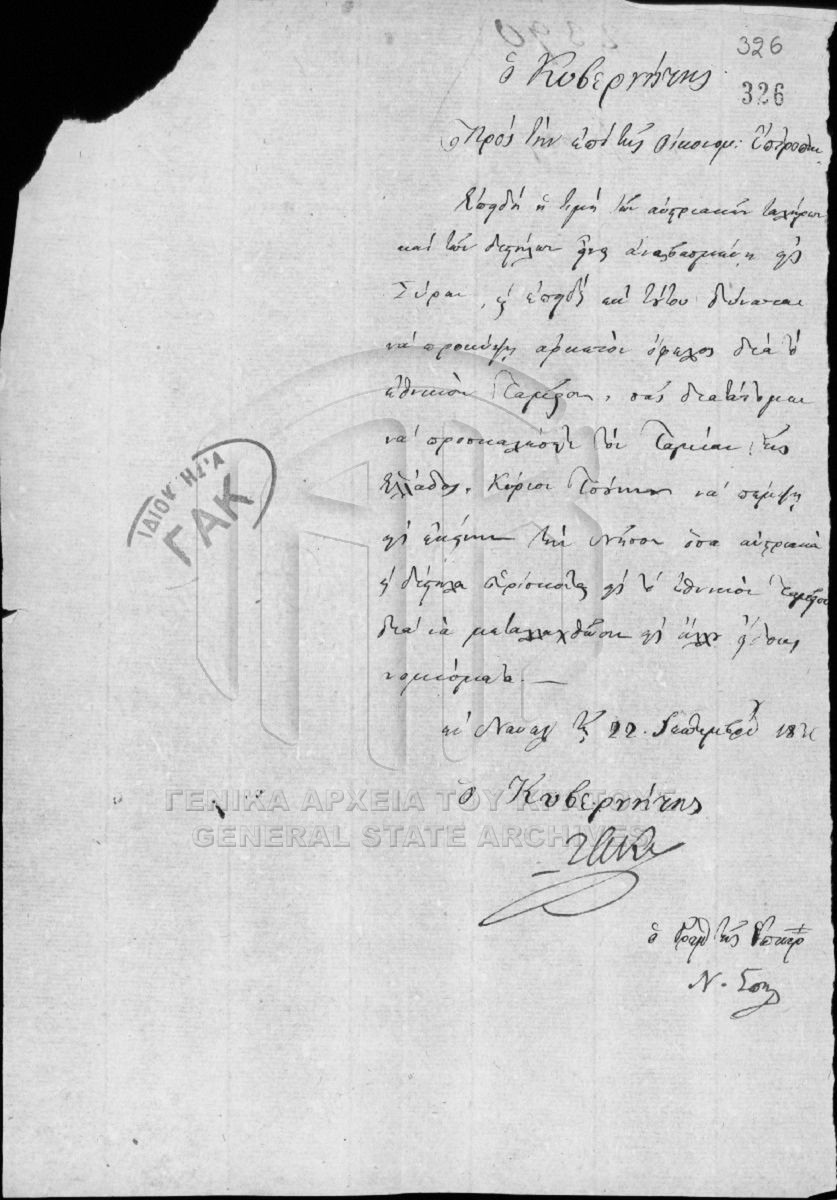 2390
326
326
ὁ Κυβερνήτης
Πρὸς τὴν ἐπὶ τῆς Οἰκονομ: Ἐπιτροπὴν
Ἐπειδὴ ἡ τιμὴ τῶν αὐστριακῶν ταλήρων
καὶ τῶν διστήλων εἶναι ἀναβιβασμένη εἰς
Σύραν, καὶ ἐπειδὴ ἐκ τούτου δύναται
νὰ προκύψῃ ἀρκετὸν ὄφελος διὰ τὸ
ἐθνικὸν Ταμεῖον, σᾶς διατάττομεν
νὰ προσκαλέσετε τὸν Ταμίαν τῆς
Ἑλλάδος, Κύριον νὰ πέμψῃ
εἰς ἐκείνην τὴν νῆσον ὅσα αὐστριακὰ
καὶ δίστηλα εὑρίσκονται εἰς τὸ ἐθνικὸν Ταμεῖον
διὰ νὰ μεταλλαχθῶσιν εἰς ἄλλα
νομίσματα. —
ἐν Ναυπλ τῇ 22.
ὁ Κυβερνήτης
ὁ Γραμ τῆς Ἐπικρ
Ν. Σπηλ
ΙΔΙΟΚΤΗΣΙΑ
ΓΑΚ
ΓΕΝΙΚΑ ΑΡΧΕΙΑ ΤΟΥ ΚΡΑΤΟΥΣ
GENERAL STATE ARCHIVES